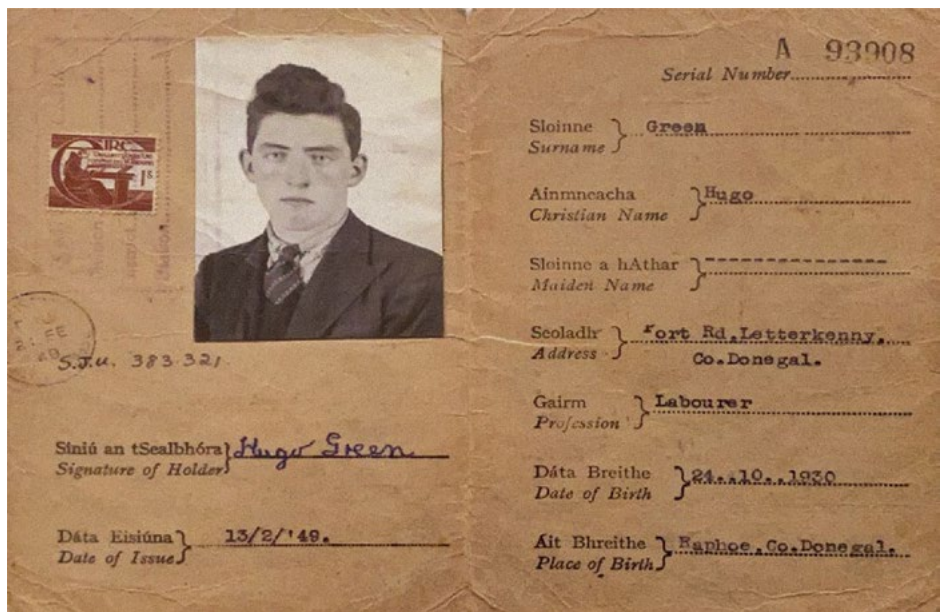 ÉIRE
1s
S.J.U. 383.321
Síniú an tSealbhóra
Signature of Holder
Hugo Green
Dáta Eisiúna
Date of Issue
13/2/'49.
A 93908
Serial Number
Sloinne
Surname
Green
Ainmneacha
Christian Name
Hugo
Sloinne a hAthar
Maiden Name
Seoladh
Address
Rd,Letterkenny,
Co.Donegal.
Gairm
Profession
Labourer
Dáta Breithe
Date of Birth
24..10..1930
Áit Bhreithe
Place of Birth
Raphoe,Co.Donegal.